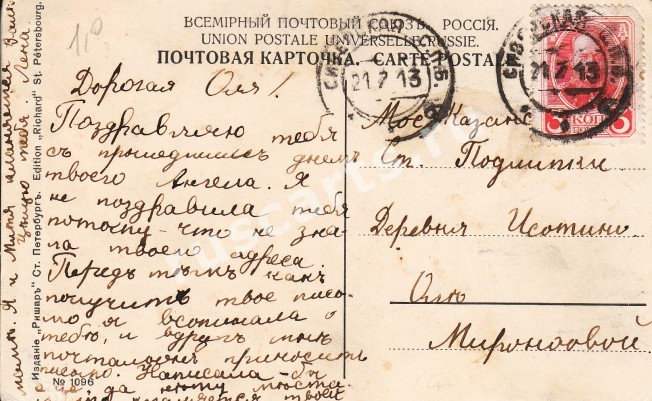 ВСЕМІРНЫЙ ПОЧТОВЫЙ СОЮЗЪ. РОССІЯ.
UNION POSTALE UNIVERSELLE. RUSSIE.
ПОЧТОВАЯ КАРТОЧКА. CARTE POSTALE
21.7.13
21 7 13
3 КОП 3
Дорогая Оля!
Поздравляю тебя
съ прошедшимъ днемъ
твоего Ангела. Я
не поздравила тебя
потому-что не зна-
ла твоего адреса.
Передъ тѣмъ какъ
получить твое пись-
мо я вспомнала о
тебѣ, и вдругъ мнѣ
почтальонъ приноситъ
письмо. Написала-бы
еще, да нѣту мѣста.
твоей
Я и Митя
цѣлую тебя. Лена
Мос. Казанс
Ст. Подлипки
Деревня Исотино
Олѣ
Мироновой.
Изданіе „Ришаръ" Ст. Петербургъ. Edition „Richard" St. Pétersbourg.
№ 1096